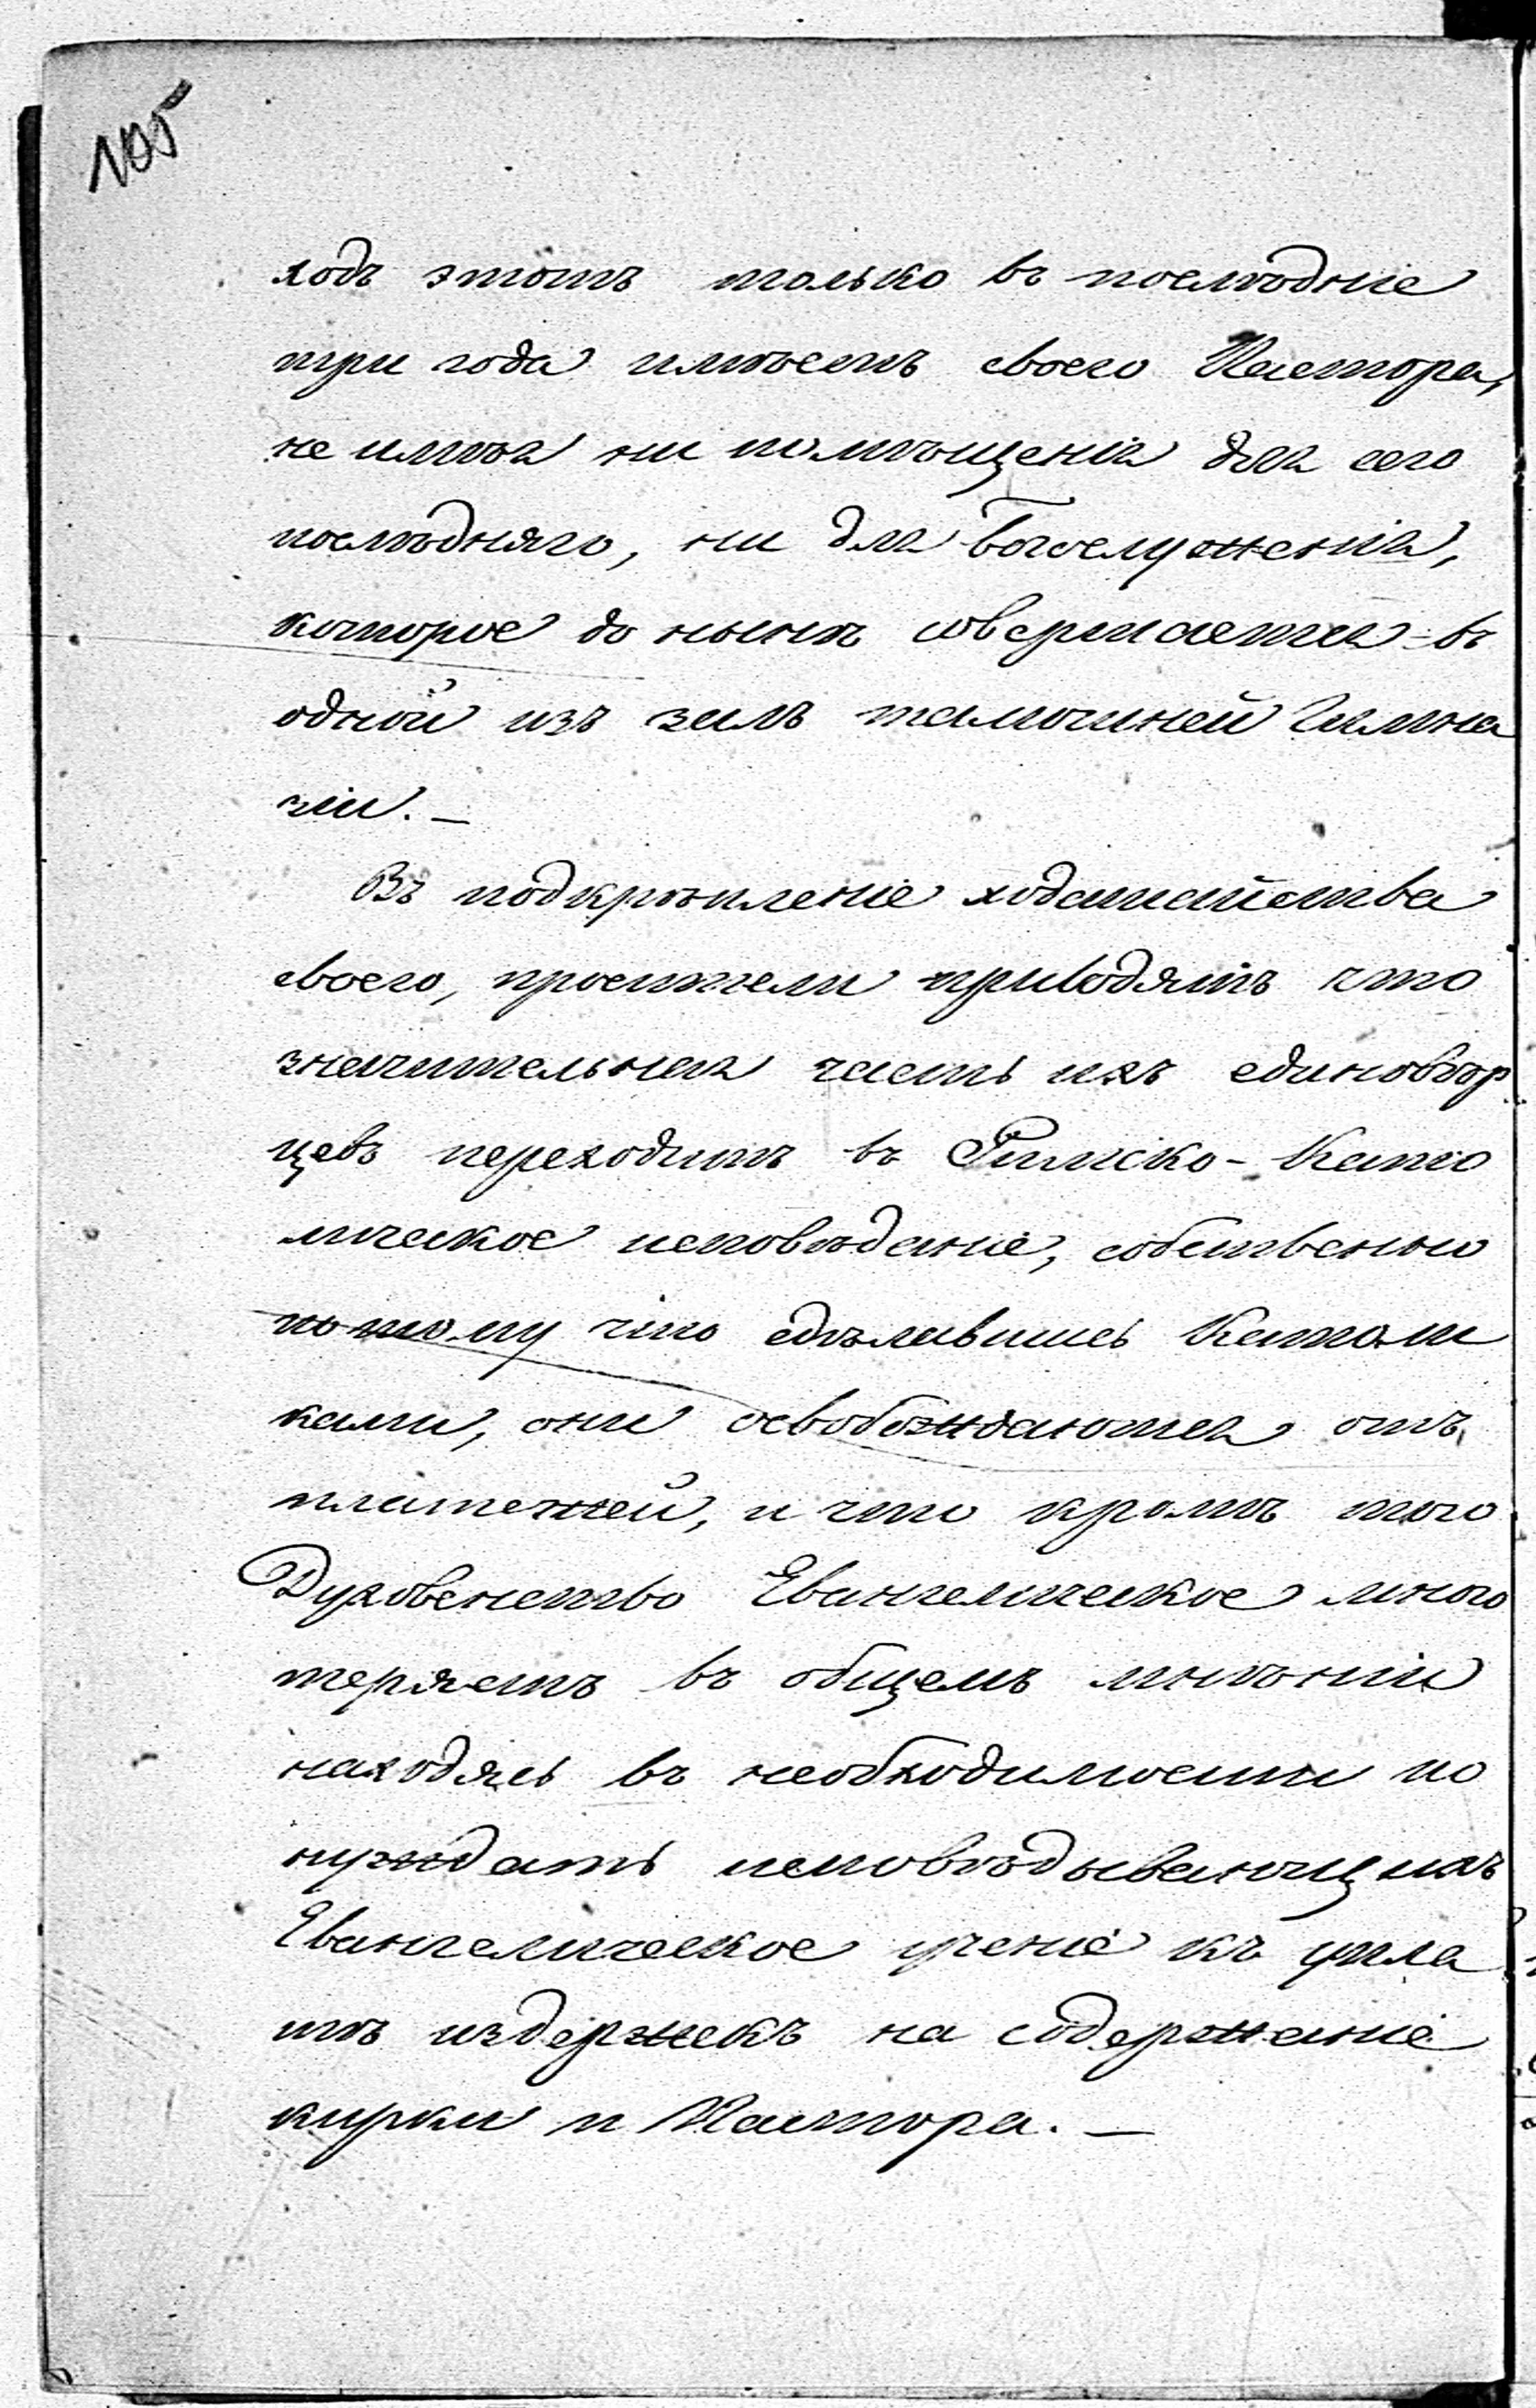 105
ходъ этотъ только въ последніе
три года имѣетъ своего Пастора,
не имѣя ни помѣщенія для сего
послѣдняго, ни для Богослуженія,
которое до нынѣ совершается въ
одной изъ залъ тамошней Гимна
зіи. —
Въ подкрѣпленіе ходатайства
своего, просители приводятъ что
значительная часть ихъ единовѣр
цевъ переходитъ въ Римско-Като
лическое исповѣданіе, собственно
потому что сдѣлавшись Католи
ками, они освобождаются отъ
платежей, и что кромѣ того
Духовенство Евангелическое много
теряетъ въ общемъ мнѣніи
находясь въ необходимости по
нуждать исповѣдывающихъ
Евангелическое ученіе къ упла
тѣ издержекъ на содержаніе
кирки и Пастора. —